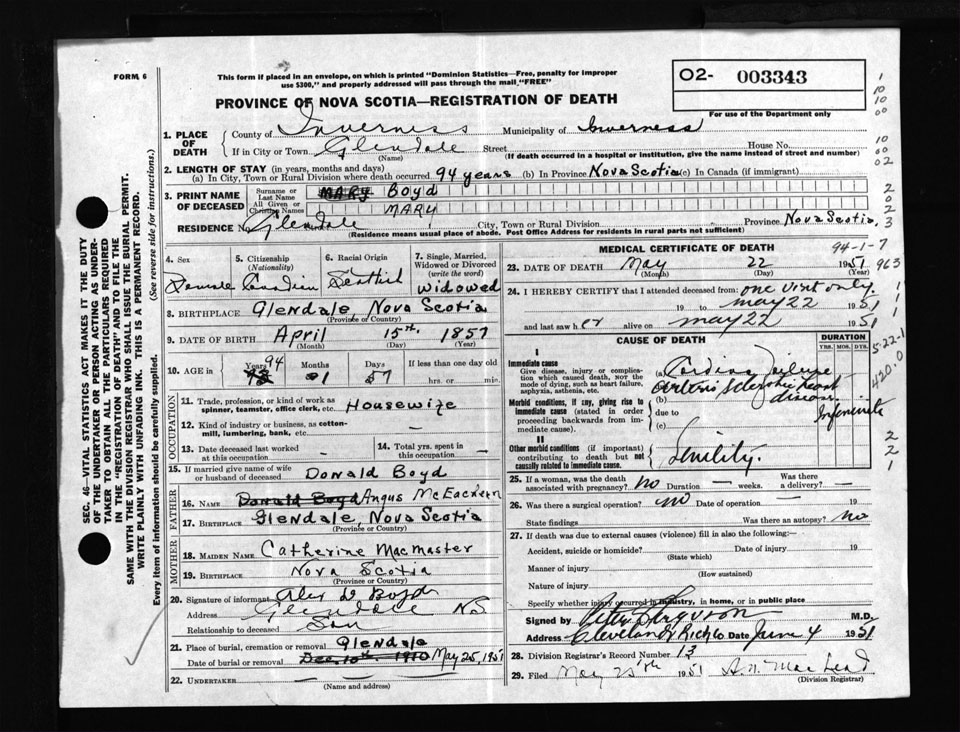 FORM 6
This form if placed in an envelope, on which is printed "Dominion Statistics—Free, penalty for improper
use $300," and properly addressed will pass through the mail "FREE"
O2- 003343
For use of the Department only
PROVINCE OF NOVA SCOTIA—REGISTRATION OF DEATH
1. PLACE OF DEATH
County of Inverness Municipality of Inverness
If in City or Town Glendale Street House No.
(Name) (If death occurred in a hospital or institution, give the name instead of street and number)
2. LENGTH OF STAY (in years, months and days)
(a) In City, Town or Rural Division where death occurred 94 years (b) In Province Nova Scotia (c) In Canada (if immigrant)
3. PRINT NAME OF DECEASED
Surname or Last Name MARY Boyd
All Given or Christian Names MARY
RESIDENCE No. Glendale City, Town or Rural Division Province Nova Scotia
(Residence means usual place of abode. Post Office Address for residents in rural parts not sufficient)
4. Sex
Female
5. Citizenship
(Nationality)
Canadian
6. Racial Origin
Scottish
7. Single, Married,
Widowed or Divorced
(write the word)
Widowed
8. BIRTHPLACE Glendale Nova Scotia
(Province or Country)
9. DATE OF BIRTH April 15th. 1857
(Month) (Day) (Year)
10. AGE in
Years 94 Months 1 Days 7 If less than one day old
hrs. or min.
OCCUPATION
11. Trade, profession, or kind of work as
spinner, teamster, office clerk, etc. Housewife
12. Kind of industry or business, as cotton-
mill, lumbering, bank, etc. —
13. Date deceased last worked
at this occupation -
14. Total yrs. spent in
this occupation —
15. If married give name of wife
or husband of deceased Donald Boyd
FATHER
16. NAME Donald Boyd Angus McEachern
17. BIRTHPLACE Glendale, Nova Scotia
(Province or Country)
MOTHER
18. MAIDEN NAME Catherine MacMaster
19. BIRTHPLACE Nova Scotia
(Province or Country)
20. Signature of informant Alex D Boyd
Address Glendale NS
Relationship to deceased Son
21. Place of burial, cremation or removal Glendale
Date of burial or removal Dec. 10th. 1910 May 25, 1951
22. UNDERTAKER —
(Name and address)
MEDICAL CERTIFICATE OF DEATH
94-1-7
23. DATE OF DEATH May 22 1951
(Month) (Day) (Year)
963
24. I HEREBY CERTIFY that I attended deceased from: one visit only.
19 to May 22 1951
and last saw her alive on May 22 1951
CAUSE OF DEATH
DURATION
YRS. MOS. DYS.
I
Immediate cause
Give disease, injury or complica-
tion which caused death, not the
mode of dying, such as heart failure,
asphyxia, asthenia, etc.
(a) Cardiac failure
Arteriosclerotic heart
disease
Morbid conditions, if any, giving rise to
immediate cause (stated in order
proceeding backwards from im-
mediate cause).
(b)
due to
(c)
II
Other morbid conditions (if important)
contributing to death but not
causally related to immediate cause.
Senility.
5-22-1
420-0
25. If a woman, was the death
associated with pregnancy? no Duration — weeks. Was there
a delivery? —
26. Was there a surgical operation? no Date of operation 19
State findings Was there an autopsy? No
27. If death was due to external causes (violence) fill in also the following:—
Accident, suicide or homicide? Date of injury 19
(State which)
Manner of injury
(How sustained)
Nature of injury
Specify whether injury occurred in industry, in home, or in public place
Signed by Peter Ferguson M.D.
Address Cleveland Rich Co Date June 4 1951
28. Division Registrar's Record Number 13
29. Filed May 25th 1951 A. MacLeod
(Division Registrar)
SEC. 46—VITAL STATISTICS ACT MAKES IT THE DUTY
OF THE UNDERTAKER OR PERSON ACTING AS UNDER-
TAKER TO OBTAIN ALL THE PARTICULARS REQUIRED
IN THE "REGISTRATION OF DEATH" AND TO FILE THE
SAME WITH THE DIVISION REGISTRAR WHO SHALL ISSUE THE BURIAL PERMIT.
WRITE PLAINLY WITH UNFADING INK. THIS IS A PERMANENT RECORD.
Every item of information should be carefully supplied. (See reverse side for instructions.)